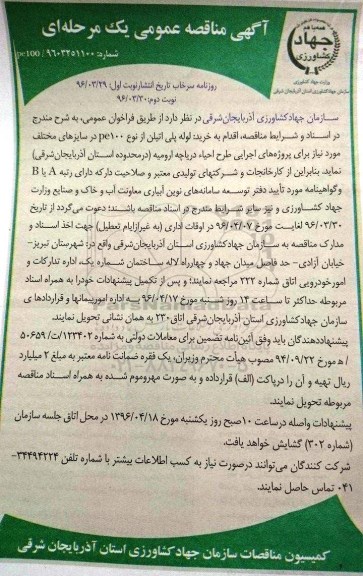 آگهی مناقصه عمومی یک مرحله‌ای
شماره: ۹۶۰۳۲۵۱۱۰۰ / pe100
جهاد
کشاورزی
وزارت جهاد کشاورزی
سازمان جهادکشاورزی استان آذربایجان شرقی
روزنامه سرخاب تاریخ انتشارنوبت اول: ۹۶/۰۳/۲۹
نوبت دوم: ۹۶/۰۳/۳۰
سازمان جهادکشاورزی آذربایجان‌شرقی در نظر دارد از طریق فراخوان عمومی، به شرح مندرج
در اسناد و شرایط مناقصه، اقدام به خرید: لوله پلی اتیلن از نوع pe۱۰۰ در سایزهای مختلف
مورد نیاز برای پروژه‌های اجرایی طرح احیاء دریاچه ارومیه (درمحدوده استان آذربایجان‌شرقی)
نماید. بنابراین از کارخانجات و شرکتهای تولیدی معتبر و صلاحیت دارکه دارای رتبه A یا B
وگواهینامه مورد تأیید دفتر توسعه سامانه‌های نوین آبیاری معاونت آب و خاک و صنایع وزارت
جهاد کشاورزی و نیز سایر شرایط مندرج در اسناد مناقصه باشند؛ دعوت می‌گردد از تاریخ
۹۶/۰۳/۳۰ لغایت مورخ ۹۶/۰۴/۰۷ در اوقات اداری (به غیرازایام تعطیل) جهت اخذ اسناد و
مدارک مناقصه به سازمان جهادکشاورزی استان آذربایجان‌شرقی واقع در: شهرستان تبریز-
خیابان آزادی- حد فاصل میدان جهاد و چهارراه لاله ساختمان شماره یک، اداره تدارکات و
امورخودرویی اتاق شماره ۲۲۲ مراجعه نمایند؛ و پس از تکمیل پیشنهادات خودرا به همراه اسناد
مربوطه حداکثر تا ساعت ۱۴ روز شنبه مورخ ۹۶/۰۴/۱۷ به اداره امورپیمانها و قراردادهای
سازمان جهادکشاورزی استان آذربایجان‌شرقی اتاق ۲۳۰ به همان نشانی تحویل نمایند.
پیشنهاددهندگان باید وفق آئین‌نامه تضمین برای معاملات دولتی به شماره ۱۲۳۴۰۲/ت/ ۵۰۶۵۹
/ه مورخ ۹۴/۰۹/۲۲ مصوب هیأت محترم وزیران، یک فقره ضمانت نامه معتبر به مبلغ ۲ میلیارد
ریال تهیه و آن را درپاکت (الف) قرارداده و به صورت مهروموم شده به همراه اسناد مناقصه
مربوطه تحویل نمایند.
پیشنهادات واصله درساعت ۱۰صبح روز یکشنبه مورخ ۱۳۹۶/۰۴/۱۸ در محل اتاق جلسه سازمان
(شماره ۳۰۲) گشایش خواهد یافت.
شرکت کنندگان می‌توانند درصورت نیاز به کسب اطلاعات بیشتر با شماره تلفن ۳۴۴۹۴۲۲۴-
۰۴۱ تماس حاصل نمایند.
کمیسیون مناقصات سازمان جهادکشاورزی استان آذربایجان شرقی